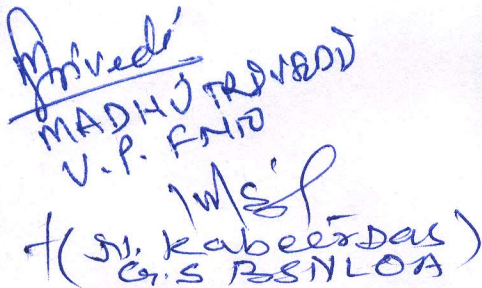 Trivedi
MADHU TRIVEDI
V.P. FNTO
(M. KabeerDas)
G.S BSNLOA